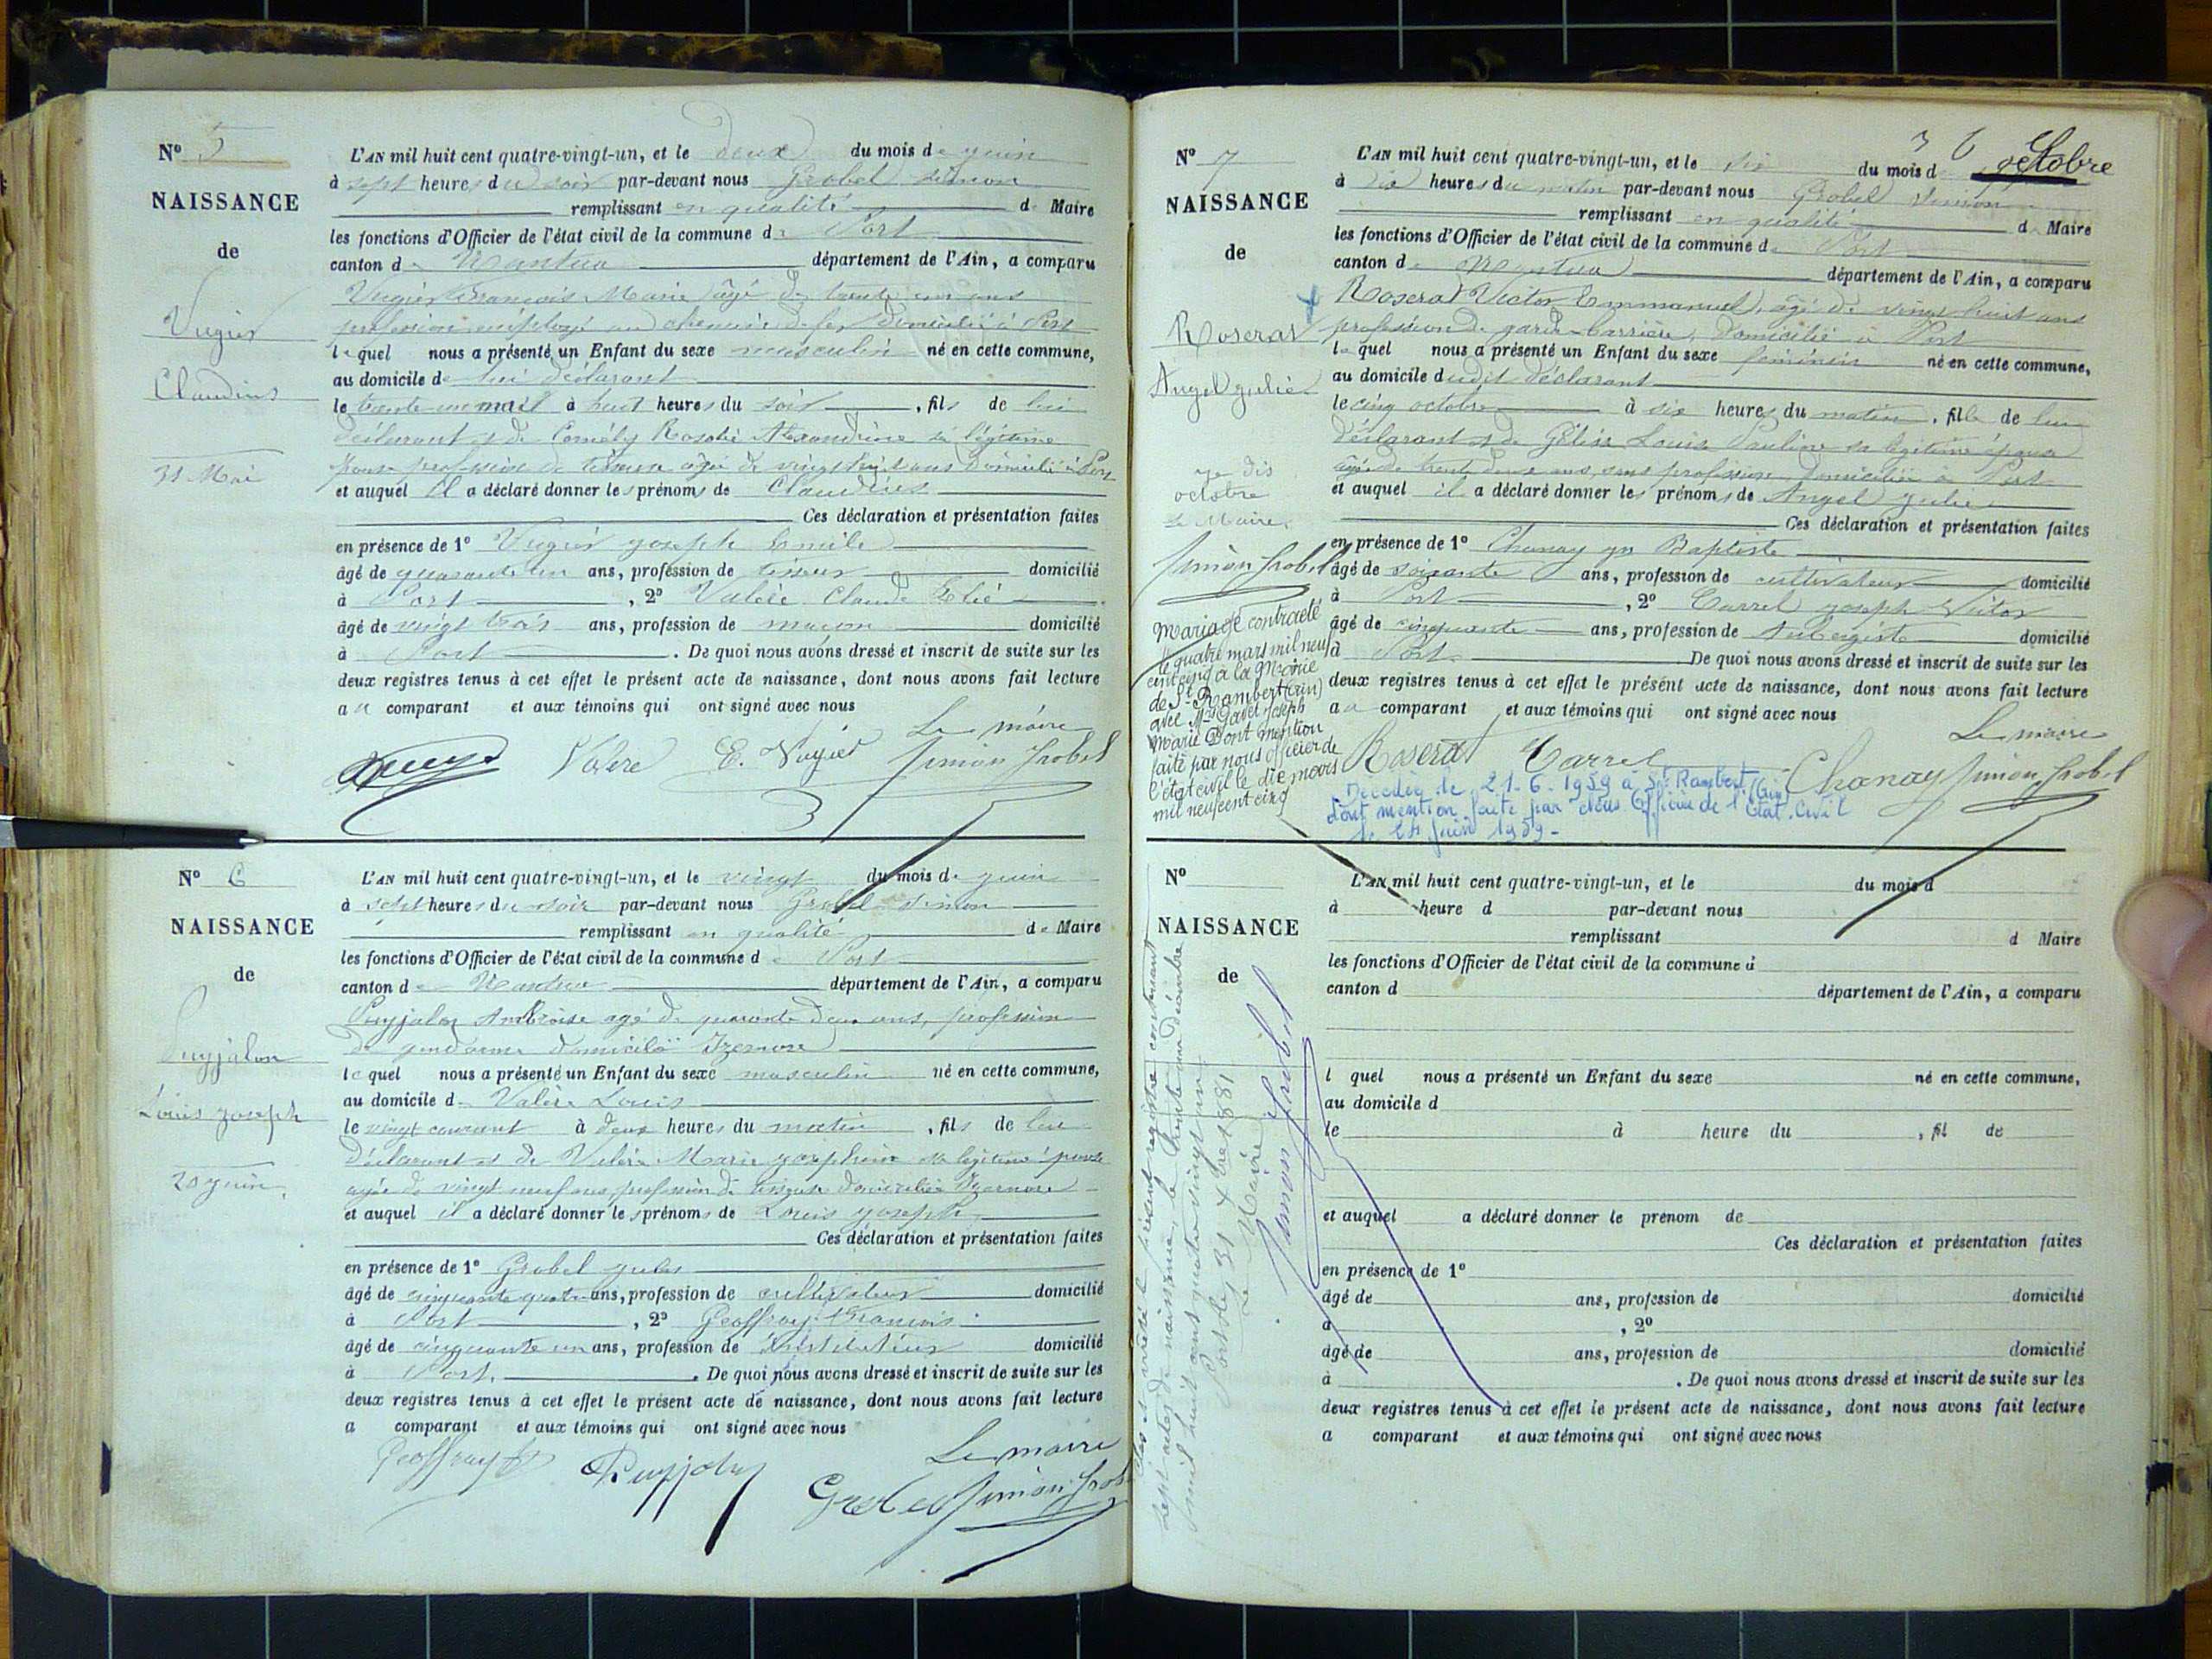 N° 5
NAISSANCE
de
Vugier
Claudius
31 Mai
L'AN mil huit cent quatre-vingt-un, et le deux du mois de juin
à sept heures du soir par-devant nous Grobel Simon
remplissant en qualité de Maire
les fonctions d'Officier de l'état civil de la commune de Port
canton de Nantua département de l'Ain, a comparu
Vugier François Marie âgé de trente un ans
profession employé au chemin de fer domicilié à Port
lequel nous a présenté un Enfant du sexe masculin né en cette commune,
au domicile de lui déclarant
le trente-un mai à huit heures du soir, fils de lui
déclarant et de Comély Rosalie Alexandrine sa légitime
épouse profession de âgée de vingt huit ans domiciliée à Port
et auquel il a déclaré donner les prénoms de Claudius
Ces déclaration et présentation faites
en présence de 1° Vugier Joseph Emile
âgé de quarante un ans, profession de tisseur domicilié
à Port, 2° Valère Claude Elié
âgé de vingt trois ans, profession de maçon domicilié
à Port. De quoi nous avons dressé et inscrit de suite sur les
deux registres tenus à cet effet le présent acte de naissance, dont nous avons fait lecture
au comparant et aux témoins qui ont signé avec nous
Le maire
Valere E. Vugier Simon Grobel
N° 6
NAISSANCE
de
Puyjalon
Louis Joseph
20 juin
L'AN mil huit cent quatre-vingt-un, et le vingt du mois de juin
à sept heures du soir par-devant nous Grobel Simon
remplissant en qualité de Maire
les fonctions d'Officier de l'état civil de la commune de Port
canton de Nantua département de l'Ain, a comparu
Puyjalon Ambroise agé de quarante deux ans, profession
de gendarme domicilé Izernore
lequel nous a présenté un Enfant du sexe masculin né en cette commune,
au domicile de Valère Louis
le vingt courant à deux heures du matin, fils de lui
déclarant et de Valère Marie Josephine sa légitime épouse
agée de vingt neuf ans, profession de domiciliée Izernore
et auquel il a déclaré donner les prénoms de Louis Joseph
Ces déclaration et présentation faites
en présence de 1° Grobel Jules
âgé de cinquante quatre ans, profession de cultivateur domicilié
à Port, 2° Geoffray François
âgé de cinquante un ans, profession de instituteur domicilié
à Port. De quoi nous avons dressé et inscrit de suite sur les
deux registres tenus à cet effet le présent acte de naissance, dont nous avons fait lecture
a comparant et aux témoins qui ont signé avec nous
Le maire
Geoffray Puyjalon Grobel Simon Grobel
N° 7
NAISSANCE
de
Roserat
Angel Julie
octobre
Le Maire,
Simon Grobel
Mariage contracté
le quatre mars mil neuf
cent cinq à la Mairie
de St Rambert (Ain)
avec Mr Gavet Joseph
Marie Dont mention
faite par nous officier de
l'état civil le dix mars
mil neuf cent cinq
L'AN mil huit cent quatre-vingt-un, et le six du mois d octobre
à dix heures du matin par-devant nous Grobel Simon
remplissant en qualité de Maire
les fonctions d'Officier de l'état civil de la commune de Port
canton de Nantua département de l'Ain, a comparu
Roserat Victor Emmanuel, âgé de vingt huit ans
profession de garde-barrière, Domicilié à Port
lequel nous a présenté un Enfant du sexe féminin né en cette commune,
au domicile dudit déclarant
le cinq octobre à six heures du matin, fille de lui
déclarant et de Louis Pauline sa légitime épouse
agée de trente deux ans, sans profession, Domiciliée à Port
et auquel il a déclaré donner les prénoms de Angel Julie
Ces déclaration et présentation faites
en présence de 1° Chanay Jn Baptiste
âgé de soixante ans, profession de cultivateur domicilié
à Port, 2° Carrel Joseph Victor
âgé de cinquante ans, profession de Aubergiste domicilié
à Port. De quoi nous avons dressé et inscrit de suite sur les
deux registres tenus à cet effet le présent acte de naissance, dont nous avons fait lecture
au comparant et aux témoins qui ont signé avec nous
Le maire
Roserat Carrel Chanay Simon Grobel
Décédée le 21-6-1959 à St Rambert (Ain)
dont mention faite par nous Officier de l'Etat-Civil
le juin 1959-
N°
NAISSANCE
de
L'AN mil huit cent quatre-vingt-un, et le du mois d
à heure d par-devant nous
remplissant d Maire
les fonctions d'Officier de l'état civil de la commune d
canton d département de l'Ain, a comparu
l quel nous a présenté un Enfant du sexe né en cette commune,
au domicile d
le à heure du, fil de
et auquel a déclaré donner le prénom de
Ces déclaration et présentation faites
en présence de 1°
âgé de ans, profession de domicilié
à, 2°
âgé de ans, profession de domicilié
à. De quoi nous avons dressé et inscrit de suite sur les
deux registres tenus à cet effet le présent acte de naissance, dont nous avons fait lecture
a comparant et aux témoins qui ont signé avec nous
Clos et arrêté le présent registre contenant
sept actes de naissance, le trente un décembre
mil huit cent quatre vingt un
Port le 31 Xbre 1881
Le Maire
Simon Grobel